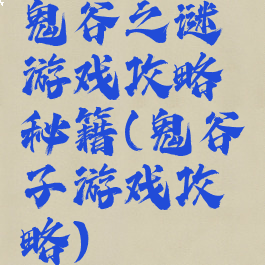 鬼谷之谜
游戏攻略
秘籍(鬼谷
子游戏攻
略)